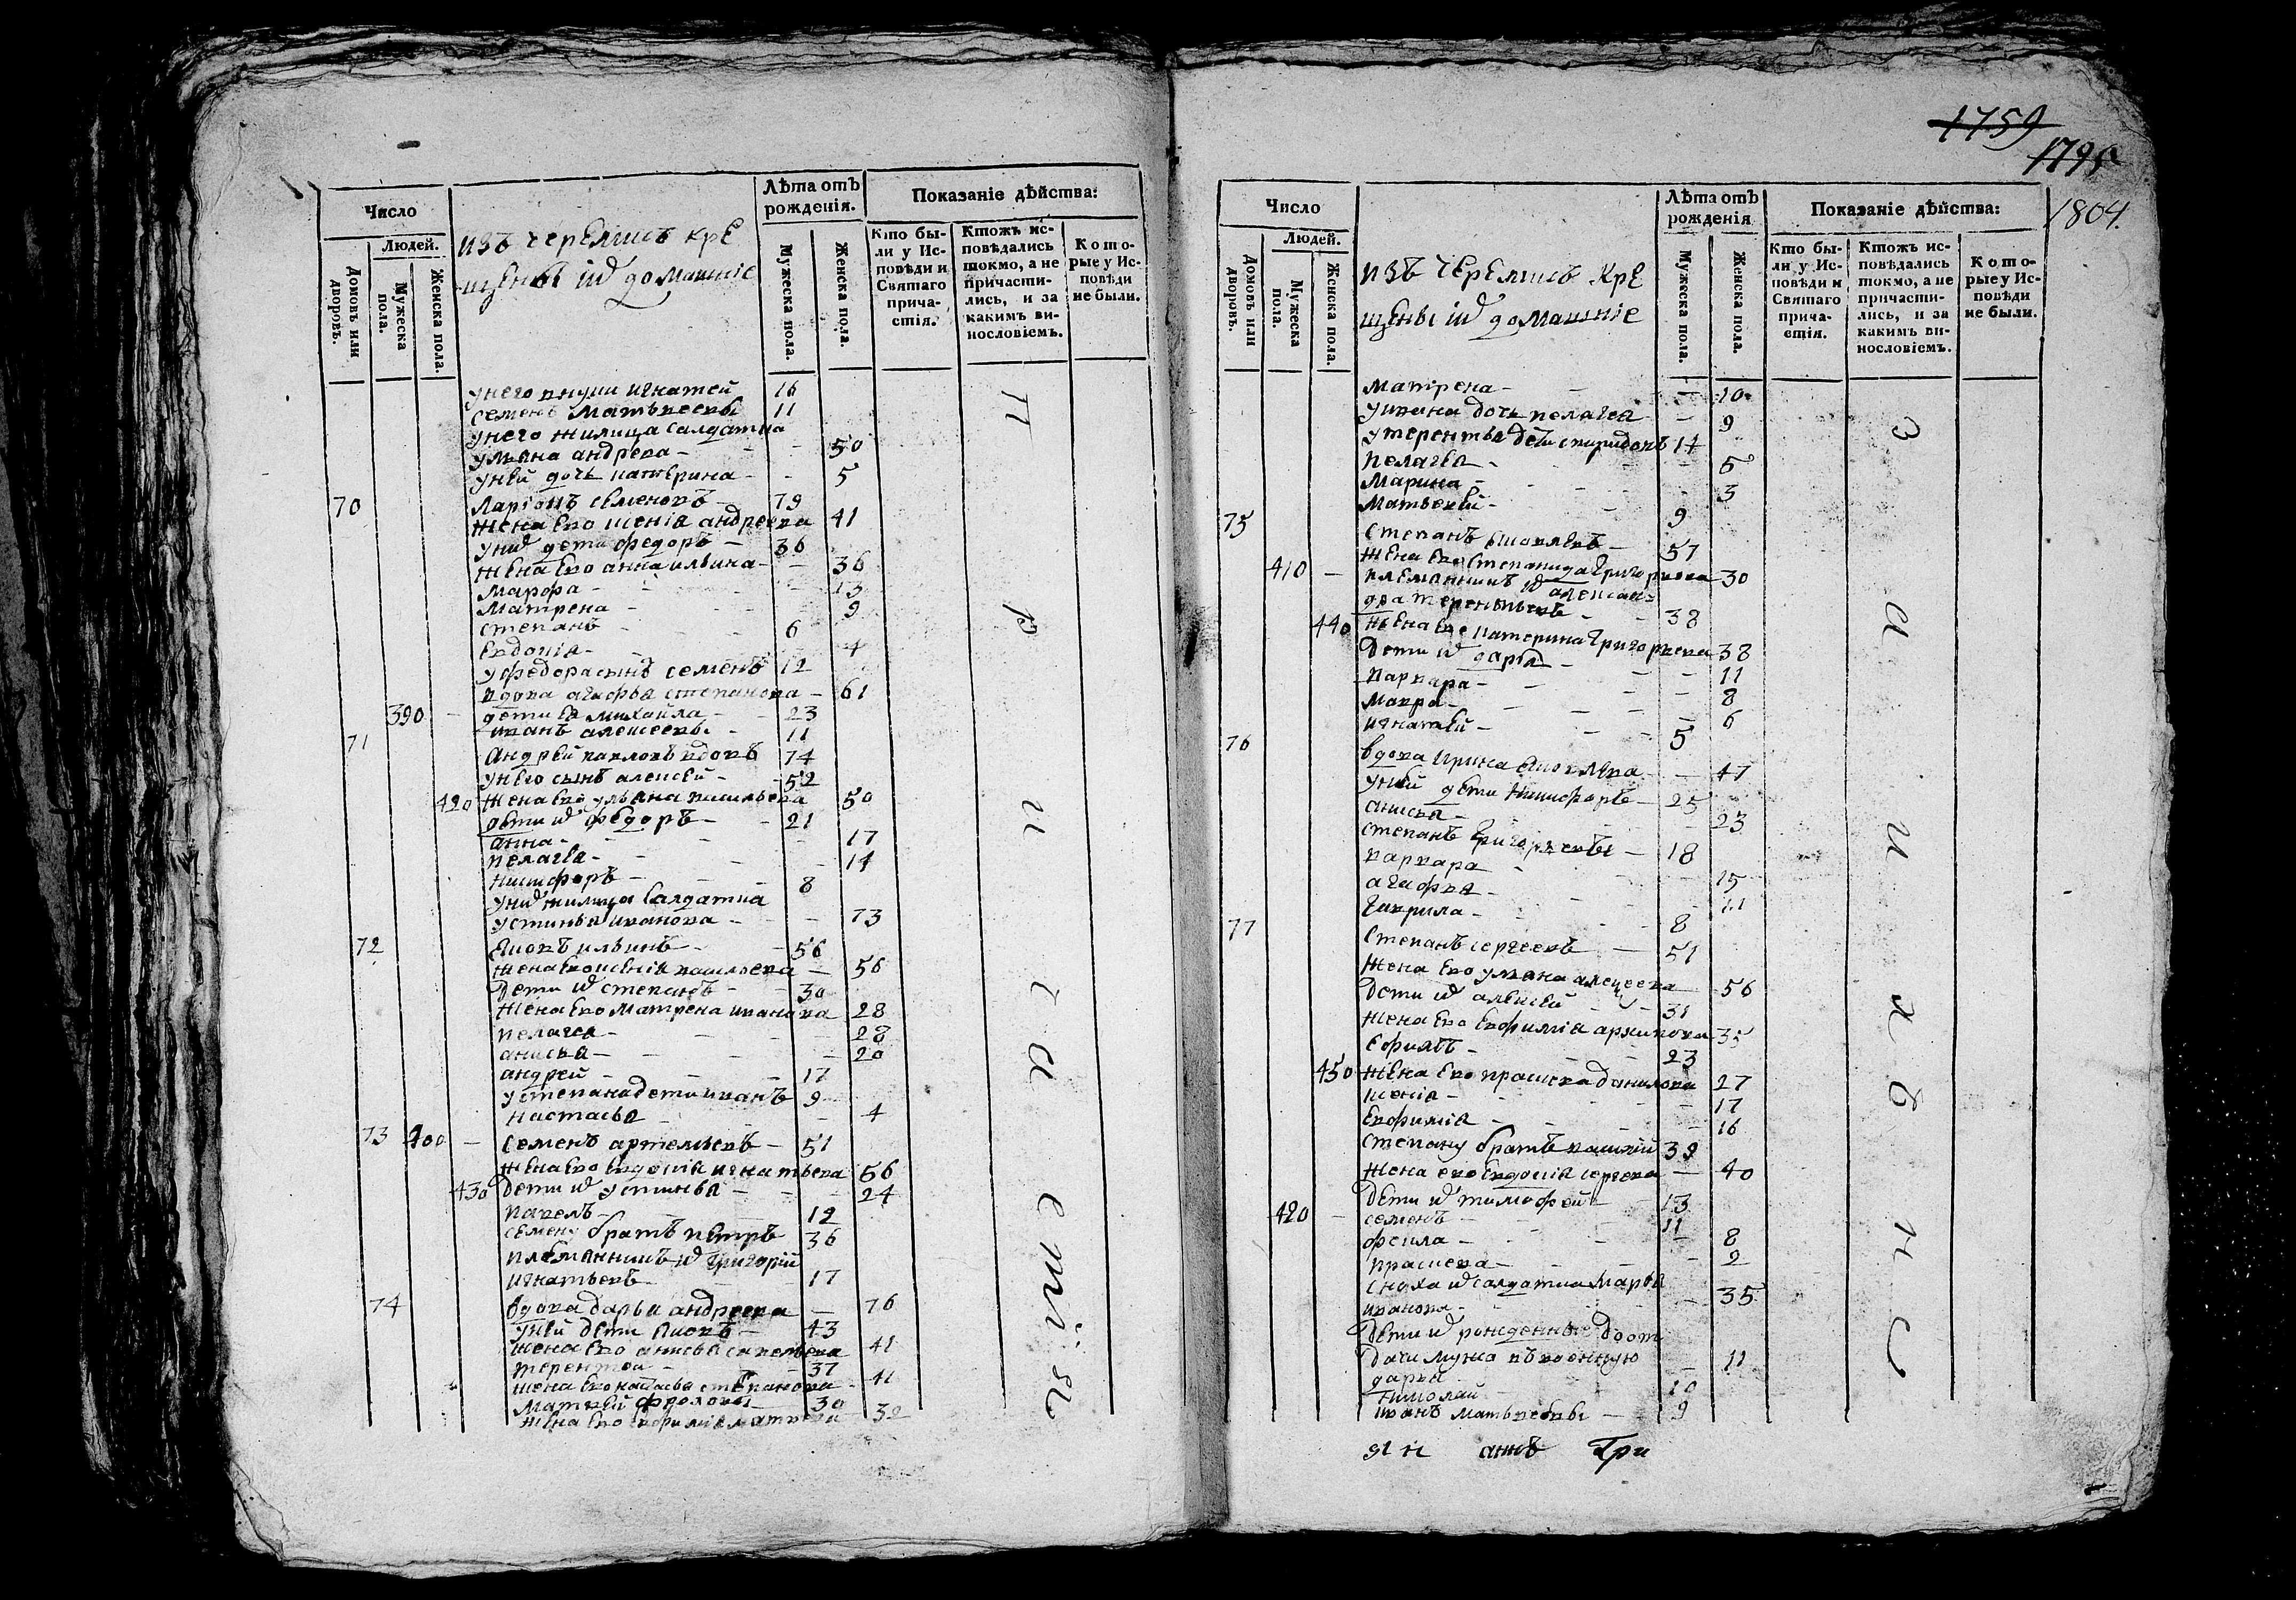 Число
Людей.
Домовъ или дворовъ.
Мужеска пола.
Женска пола.
изъ черемисъ кре
щены ихъ домашніе
Лѣта отъ рожденія.
Мужеска пола.
Женска пола.
Показаніе дѣйства:
Кто были у Исповѣди и Святаго причастія.
Ктожъ исповѣдались токмо, а не причастились, и за какимъ винословіемъ.
Которые у Исповѣди не были.
унего внуки игнатей 16
семенъ матвеевы 11
унего жилица салдатка
ульяна андреева - 50
уней дочь катерина - 5
70 Ларіонъ семеновъ - 79
жена ево ксенія андреева 41
унихъ дети федоръ - 36
жена ево анна ильина - 36
марфа - 13
матрена - 9
степанъ 6
евдокія - 4
уфедора сынъ семенъ 12
вдова агафья степанова - 61
390 - дети ея михайла - 23
иванъ алексеевы - 11
71 андрей павловъ вдовъ 74
унего сынъ алексей - 52
420 жена ево ульяна васильева 50
дети ихъ федоръ - 21
анна - 17
пелагея - 14
никифоръ - 8
унихъ жилица салдатка
устинья иванова - 73
72 яковъ ильинъ - 56
жена ево ксенія васильева - 56
дети ихъ степанъ - 30
жена ево матрена иванова 28
пелагея - 28
анисья - 20
андрей - 17
устепана дети иванъ 9
настасья - 4
73 400 - семенъ артемьевъ - 51
жена ево евдокія игнатьева 56
430 дети ихъ устинья - 24
павелъ - 12
семену братъ петръ 36
племянникъ ихъ григорій
игнатьевъ - 17
74 вдова дарья андреева - 76
уней дети яковъ - 43
жена ево анисья савельева 41
терентей - 37
жена ево настасья степанова - 41
матвей фроловы - 30
жена ево евфимія матвеева 32
п р и ч а с т і я
1759
1795
1804.
Число
Людей.
Домовъ или дворовъ.
Мужеска пола.
Женска пола.
изъ черемисъ кре
щены ихъ домашніе
Лѣта отъ рожденія
Мужеска пола.
Женска пола.
Показаніе дѣйства:
Кто были у Исповѣди и Святаго причастія.
Ктожъ исповѣдались токмо, а не причастились, и за какимъ винословіемъ.
Которые у Исповѣди не были.
матрена - 10
уивана дочь пелагея - 9
утерентья дети спиридонъ 14
пелагея - 5
марина - 3
матвей - 9
75 степанъ яковлевъ - 57
жена ево степанида григорьева 30
410 - племянникъ ихъ алексан-
дра терентьевъ - 38
440 жена ево катерина григорьева 38
дети ихъ дарья - 11
варвара - 8
мавра - 6
игнатей - 5
76 вдова ирина яковлева - 47
уней дети никифоръ - 25
анисья - 23
степанъ григорьевы - 18
варвара - 15
агафья - 11
гаврила - 8
77 степанъ сергеевъ - 51
жена ево ульяна алексеева 56
дети ихъ алексей - 31
жена ево евфимія архипова 35
ефимъ - 23
450 жена ево прасковья данилова 27
ксенія - 17
евфимія - 16
степану братъ василій 39
жена ево евдокія сергеева - 40
дети ихъ тимофей - 13
420 - семенъ - 11
фекла - 8
прасковья - 2
сноха ихъ салдатка марья
иванова - 35
дети ихъ рожденные до от
дачи мужа въ военную
дарья - 11
николай - 10
иванъ матвеевы - 9
з а и х ъ н